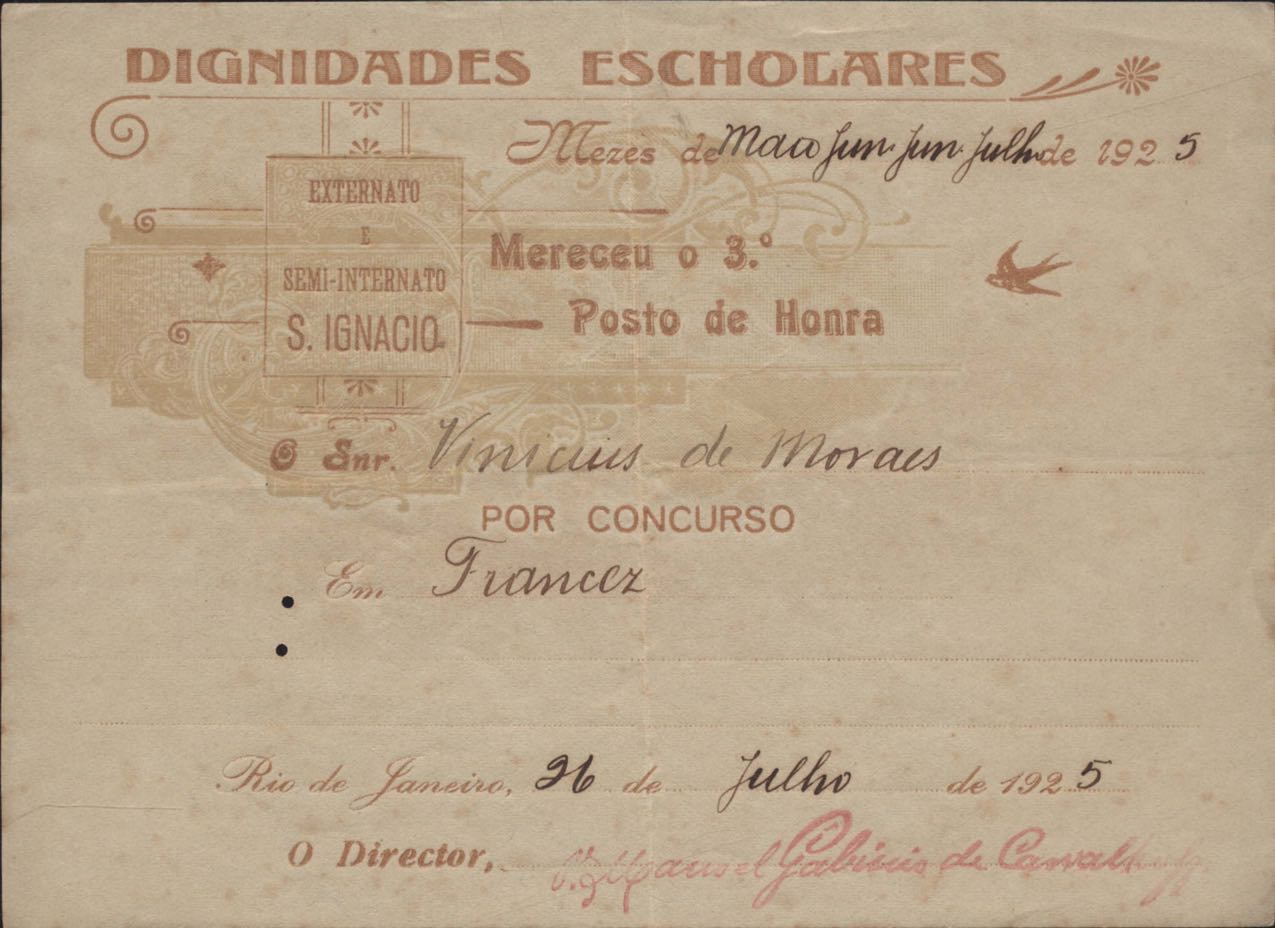 DIGNIDADES ESCHOLARES
Mezes de Maio Jun. Jun. Julh. de 1925
EXTERNATO
E
SEMI-INTERNATO
S. IGNACIO
Mereceu o 3.º
Posto de Honra
O Snr. Vinicius de Moraes
POR CONCURSO
Em Francez
Rio de Janeiro, 26 de Julho de 1925
O Director, P. Manoel Gabinio de Carvalho